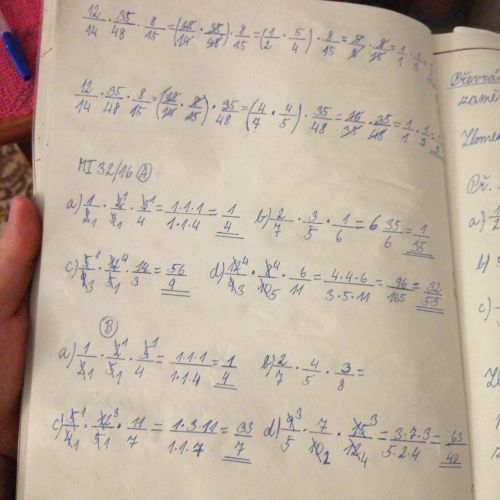 12/14 · 35/48 · 8/15 = (12/14 · 35/48) · 8/15 = (1/2 · 5/4) · 8/15 = 5/8 · 8/15 = 1/1 · 1/3
12/14 · 35/48 · 8/15 = (12/14 · 8/15) · 35/48 = (4/7 · 4/5) · 35/48 = 16/35 · 35/48 = 1/1 · 1/3 = 1/3
MI 32/16 A
a) 1/2 1 · 2 1/3 1 · 3 1/4 = 1·1·1/1·1·4 = 1/4 b) 2/7 · 3/5 · 1/6 = 6 35/6 = 1/35
c) · 12 4/5 1 · 14/3 = 56/9 d) 12 4/9 3 · 8 4/10 5 · 6/11 = 4·4·6/3·5·11 = 96/165 = 32/55
B
a) 1/2 1 · 2 1/3 1 · 3 1/4 = 1·1·1/1·1·4 = 1/4 b) 2/7 · 4/5 · 3/8 =
c) 5 1/4 1 · 12 3/5 1 · 11/7 = 1·3·11/1·1·7 = 33/7 d) · 7/10 2 · 15 3/12 4 = 3·7·3/5·2·4 = 63/40
Převrá
zamě
Zlome
Př.
a) 1/2
b)
c)